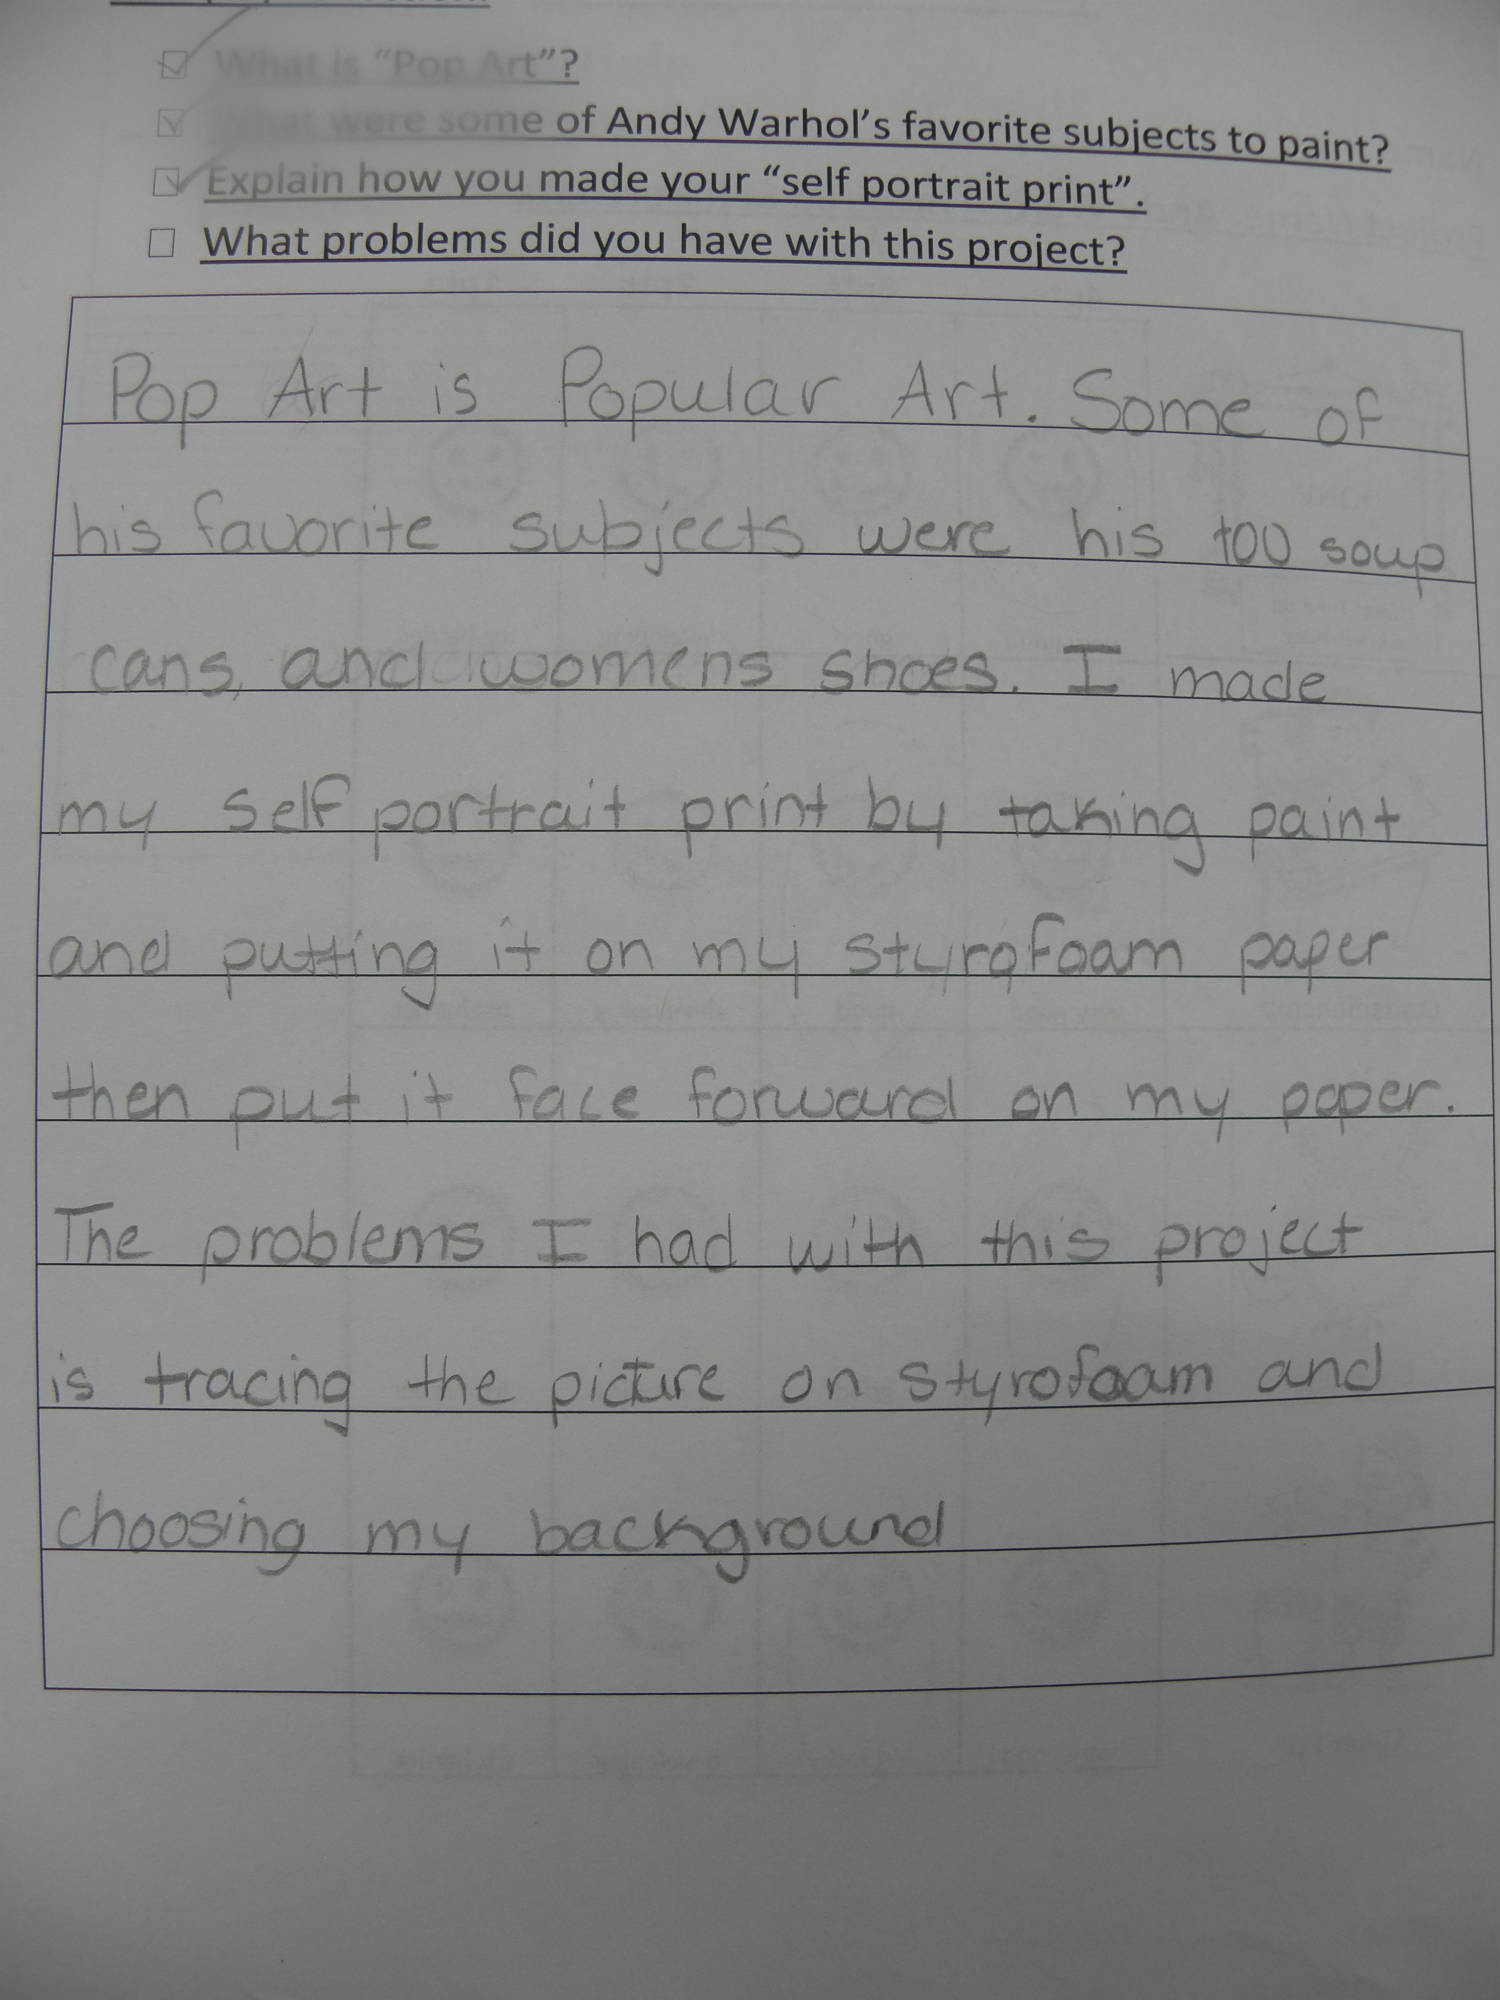 What is "Pop Art"?
What were some of Andy Warhol's favorite subjects to paint?
Explain how you made your "self portrait print".
What problems did you have with this project?
Pop Art is Popular Art. Some of
his favorite subjects were his 100 soup
cans, and womens shoes. I made
my self portrait print by taking paint
and putting it on my styrofoam paper
then put it face forward on my paper.
The problems I had with this project
is tracing the picture on styrofoam and
choosing my background